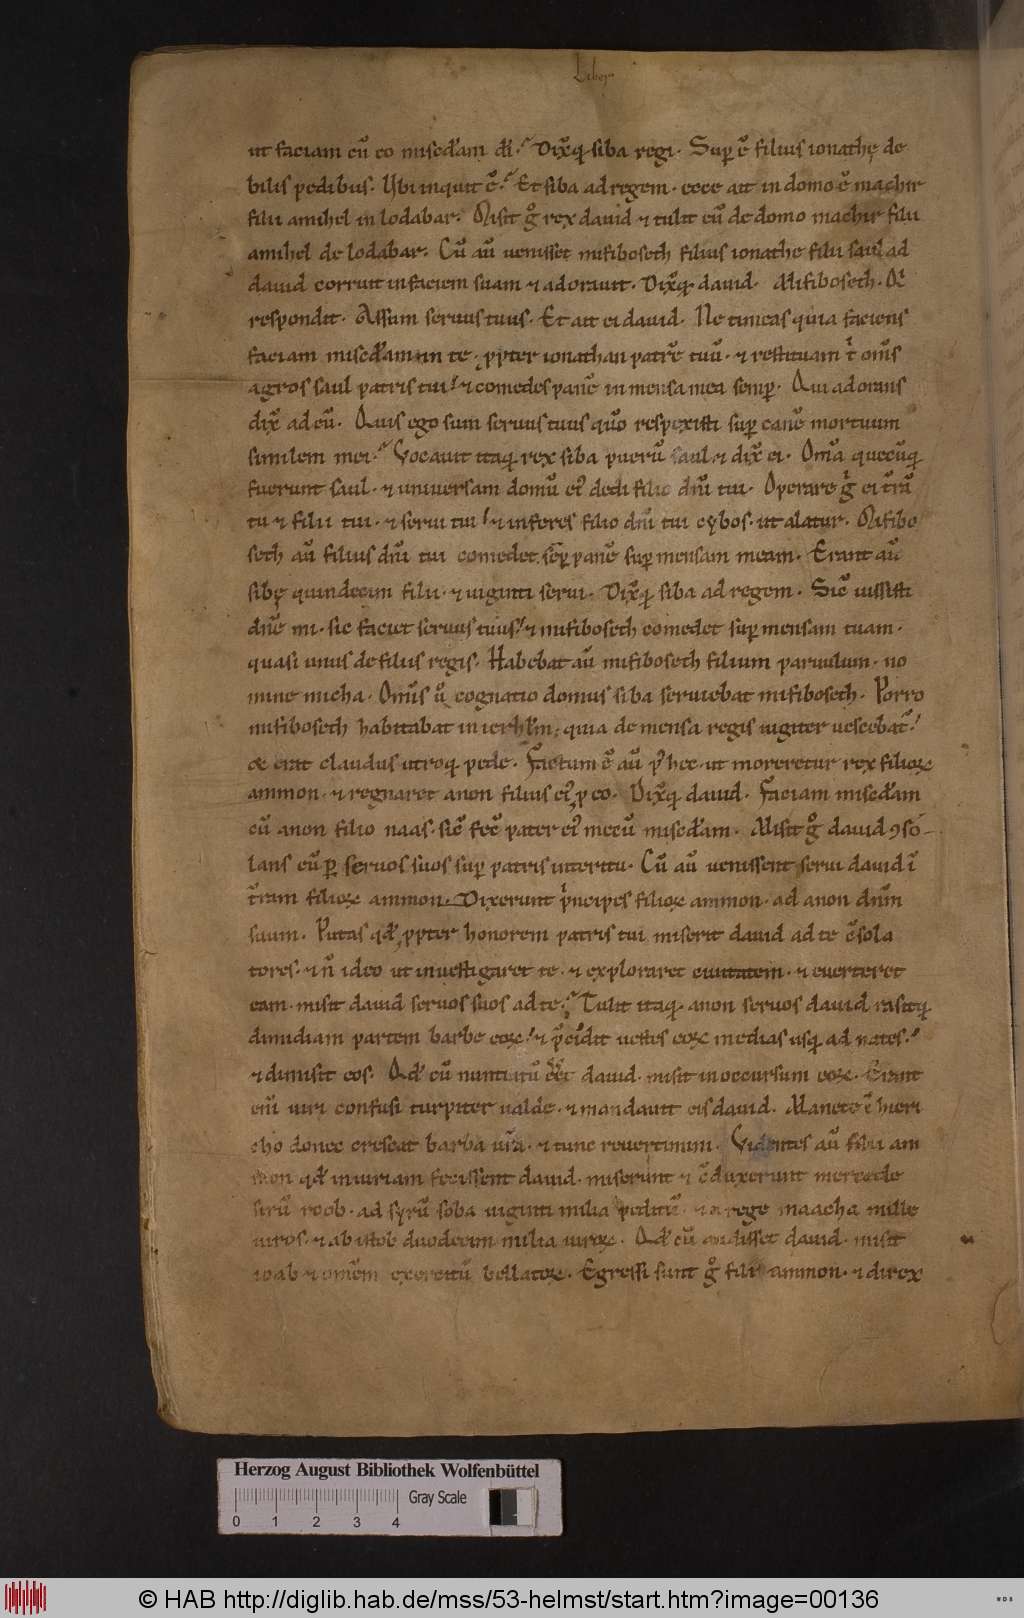 Liber
ut faciam cū eo misedam di. Dixq; siba regi. Sup ē filius ionathę de
bilis pedibus. Ubi inquit ē. Et siba ad regem. ecce ait in domo ē machir
filii amihel in lodabar. Misit g rex dauid & tulit eū de domo machir filii
amihel de lodabar. Cū aū uenisset mifiboseth filius ionathe filii saul ad
dauid corruit in faciem suam & adorauit. Dixq; dauid. Mifiboseth. Qi
respondit. Assum seruus tuus. Et ait ei dauid. Ne timeas quia faciens
faciam misedam in te. ppter ionathan patrē tuū. & restituam t oms
agros saul patris tui. & comedes panē in mensa mea semp. Qui adorans
dix ad eū. Quis ego sum seruus tuus qūo respexisti sup canē mortuum
similem mei. Vocauit itaq; rex siba puerū saul & dix ei. Oma quecūq;
fuerunt saul. & uniuersam domū ei dedi filio dni tui. Operare g ei trā
tu & filii tui. & serui tui & inferes filio dni tui cybos. ut alatur. Mifibo
seth aū filius dni tui comedet sep panē sup mensam meam. Erant aū
sibę quindecim filii. & uiginti serui. Dixq; siba ad regem. Sic iussisti
dne mi. sic faciet seruus tuus. & mifiboseth comedet sup mensam tuam.
quasi unus de filiis regis. Habebat aū mifiboseth filium paruulum. no
mine micha. Omis u cognatio domus siba seruiebat mifiboseth. Porro
mifiboseth habitabat in ierhlm, quia de mensa regis iugiter uescebat.
& erat claudus utroq; pede. Factum ē aū p hec. ut moreretur rex filioꝝ
ammon. & regnaret anon filius ei p eo. Dixq; dauid. Faciam misedam
cū anon filio naas. sic fec pater ei mecū misedam. Misit g dauid ꝯso
lans eū p seruos suos sup patris interitu. Cū aū uenissent serui dauid ī
trram filioꝝ ammon. Dixerunt pncipes filioꝝ ammon. ad anon dnm
suum. Putas qd ppter honorem patris tui miserit dauid ad te csola
tores. & n ideo ut inuestigaret te. & exploraret ciuitatem. & euerteret
eam. misit dauid seruos suos ad te. Tulit itaq; anon seruos dauid rasitq;
dimidiam partem barbe eoꝝ. & pcidit uestes eoꝝ medias usq; ad nates.
& dimisit eos. Qd cū nuntiatū eet dauid. misit in occursum eoꝝ. Erant
eni uiri confusi turpiter ualde. & mandauit eis dauid. Manete ī hieri
cho donec crescat barba ura. & tunc reuertimini. Videntes aū filii am
mon qd iniuriam fecissent dauid. miserunt & cduxerunt mercede
sirū roob. ad syrū soba uiginti milia peditū. & a rege maacha mille
uiros. & ab istob duodecim milia uiroꝝ. Qd cū audisset dauid. misit
ioab & omem exercitū bellatoꝝ. Egressi sunt g filii ammon. & direx
Herzog August Bibliothek Wolfenbüttel
Gray Scale
0 1 2 3 4
© HAB http://diglib.hab.de/mss/53-helmst/start.htm?image=00136